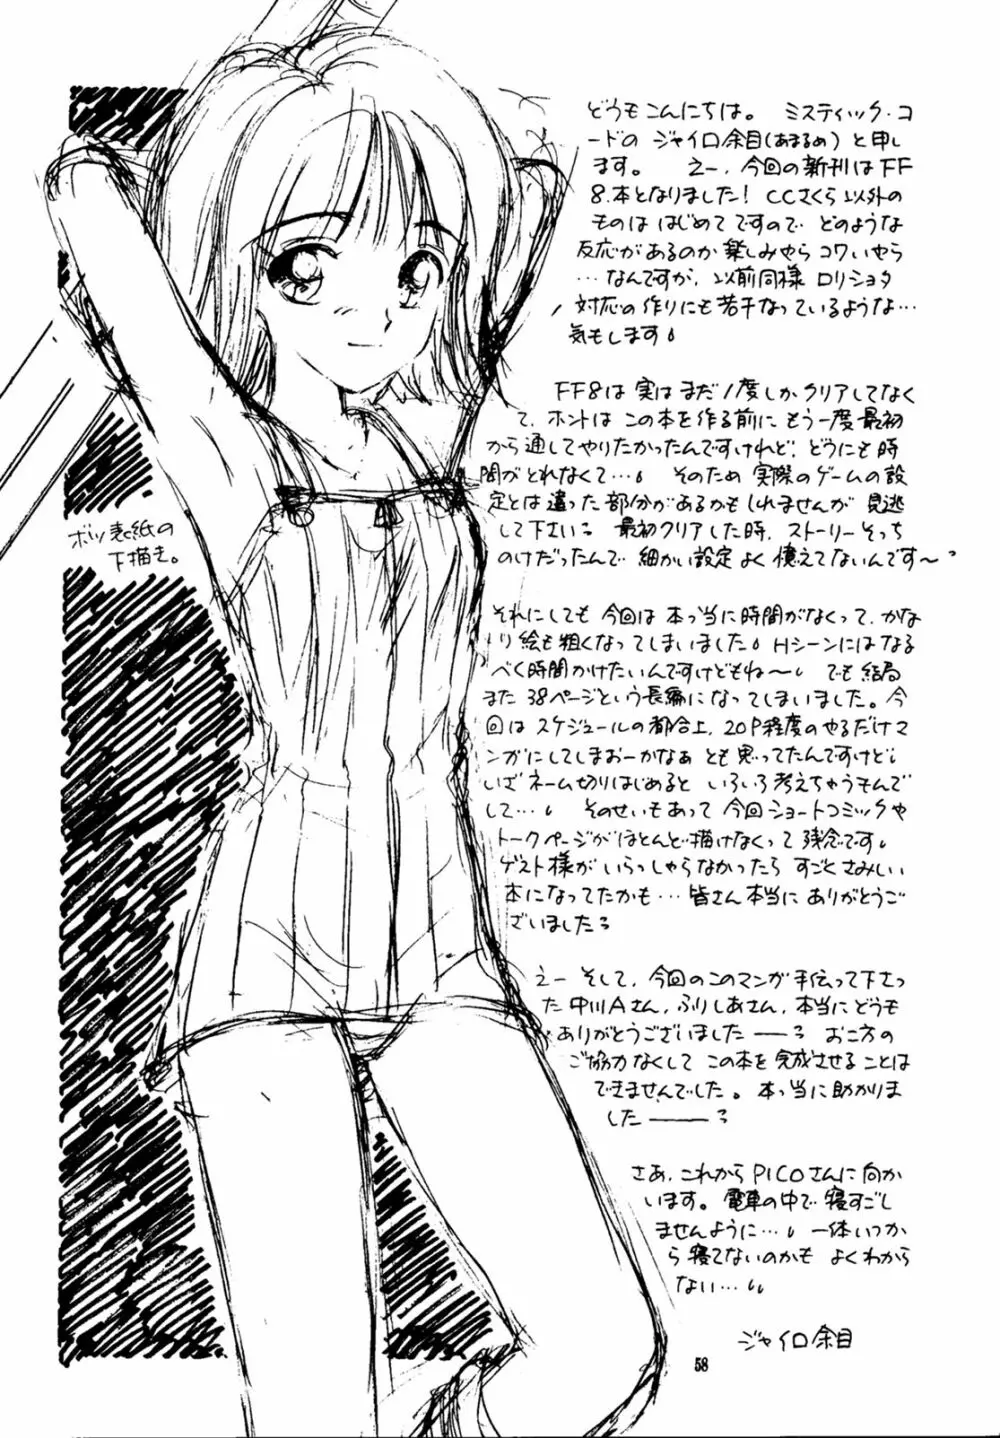 どうもこんにちは。 ミスティック・コ
ードの ジャイロ余目(あまるめ)と申し
ます。 えー、今回の新刊はFF
8本となりました! CCさくら以外の
ものは はじめてですので どのような
反応があるのか 楽しみやら コワいやら
…なんですが、以前同様 ロリショタ
対応の作りにも若干なっているような…
気もします。
FF8は 実は まだ1度しか クリアしてなく
て、ホントは この本を作る前に もう一度 最初
から通してやりたかったんですけれど、どうにも時
間がとれなくて…。 そのため 実際のゲームの設
定とは違った部分があるかもしれませんが 見逃
して下さい。 最初クリアした時、ストーリーそっち
のけだったんで 細かい設定 よく憶えてないんです〜
それにしても 今回は 本っ当に時間がなくって、かな
り絵も粗くなってしまいました。Hシーンにはなる
べく時間かけたいんですけどもね〜。 でも 結局
また 38ページという長編になってしまいました。今
回は スケジュールの都合上、20P程度のやるだけマ
ンガにしてしまおーかなぁ とも 思ってたんですけど、
いざ ネーム切りはじめると いろいろ考えちゃうもんで
して…。 そのせいもあって 今回ショートコミックや
トークページが ほとんど描けなくって 残念です。
ゲスト様が いらっしゃらなかったら すごく さみしい
本になってたかも… 皆さん本当に ありがとうご
ざいました
えー そして、今回のこのマンガ 手伝って下さっ
た 中川Aさん、ふりしあさん、本当にどうも
ありがとうございました—— お二方の
ご協力なくして この本を 完成させることは
できませんでした。 本っ当に助かりま
した——
さあ、これからPICOさんに向か
います。電車の中で 寝すごし
ませんように…。 一体いつか
ら 寝てないのかも よくわから
ない…。
ジャイロ余目
ボツ表紙の
下描き。
58